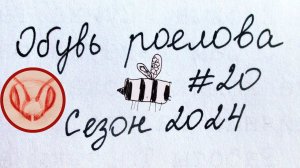 Обувь роелова
#20
Сезон 2024